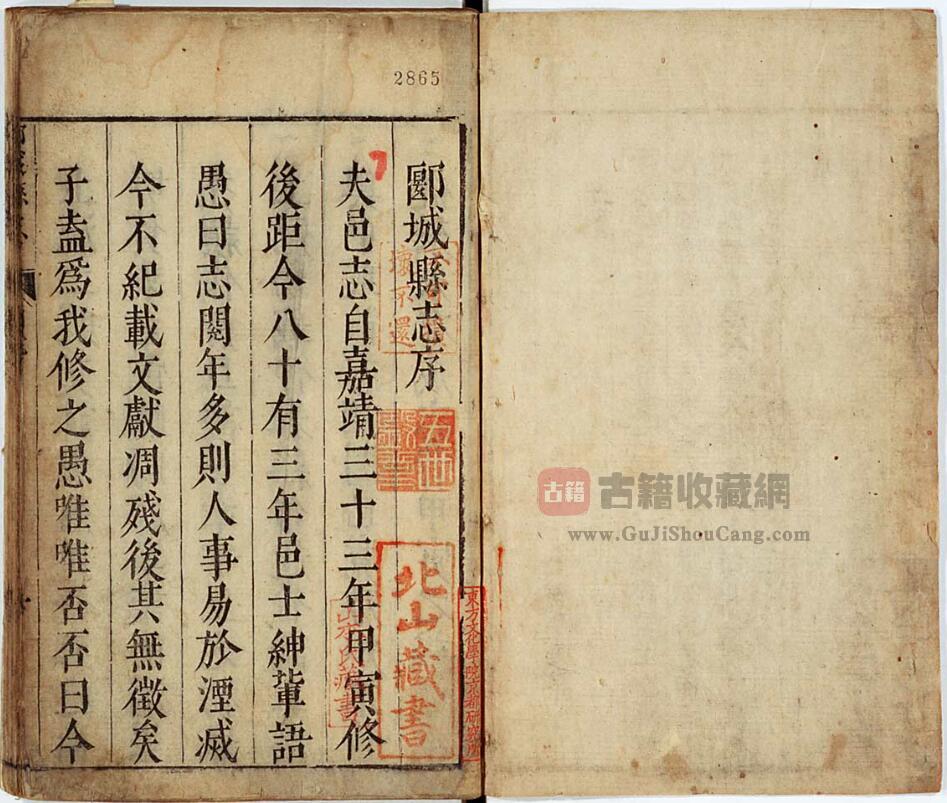 2865
郾城縣志序
夫邑志自嘉靖三十三年甲寅修
後距今八十有三年邑士紳輩語
愚曰志闕年多則人事易於湮滅
今不紀載文獻凋殘後其無徵矣
子盍爲我修之愚唯唯否否曰今
五世
北山藏書
東方文化學院京都研究所
山本氏藏書
古籍
古籍收藏網
www.GuJiShouCang.com